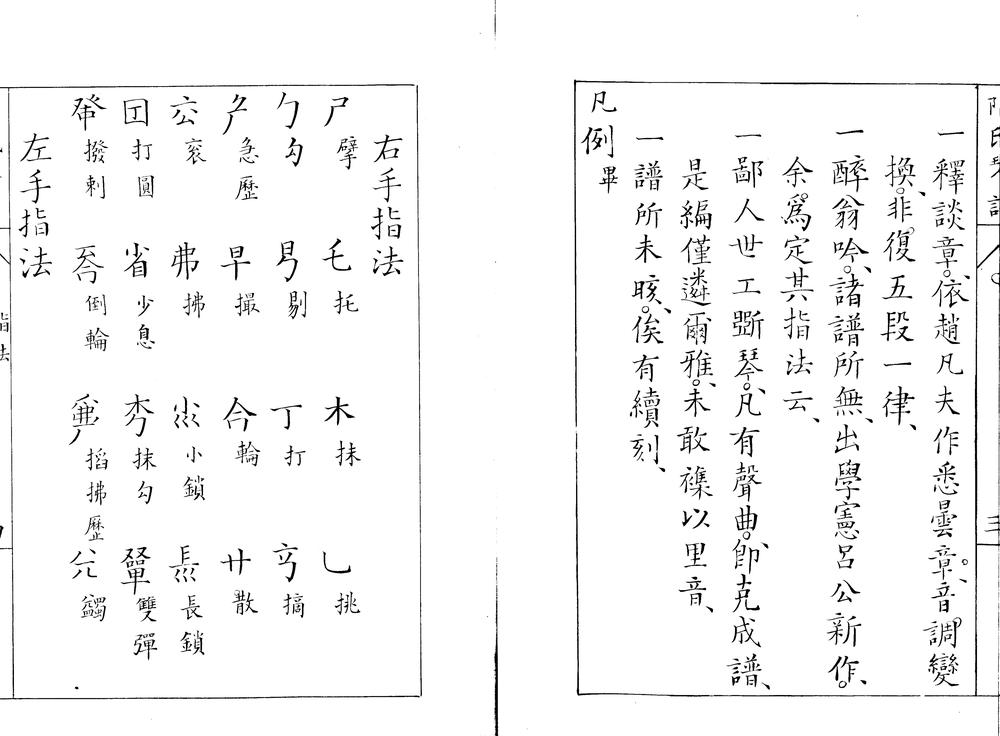 一釋談章。依趙凡夫作悉曇章。音調變
換。非復五段一律、
一醉翁吟。諸譜所無、出學憲呂公新作。
余為定其指法云、
一鄙人世工斲琴。凡有聲曲。卽克成譜、
是編僅遴爾雅。未敢襍以里音、
一譜所未晐。俟有續刻、
凡例畢
三
右手指法
尸 擘 乇 托 木 抹 乚 挑
勹 勾 剔 丁 打 摘
急歷 早 撮 今 輪 廿 散
滾 弗 拂 小鎖 長鎖
囙 打圓 省 少息 抹勾 雙彈
撥剌 倒輪 搯拂歷 蠲
左手指法
指法